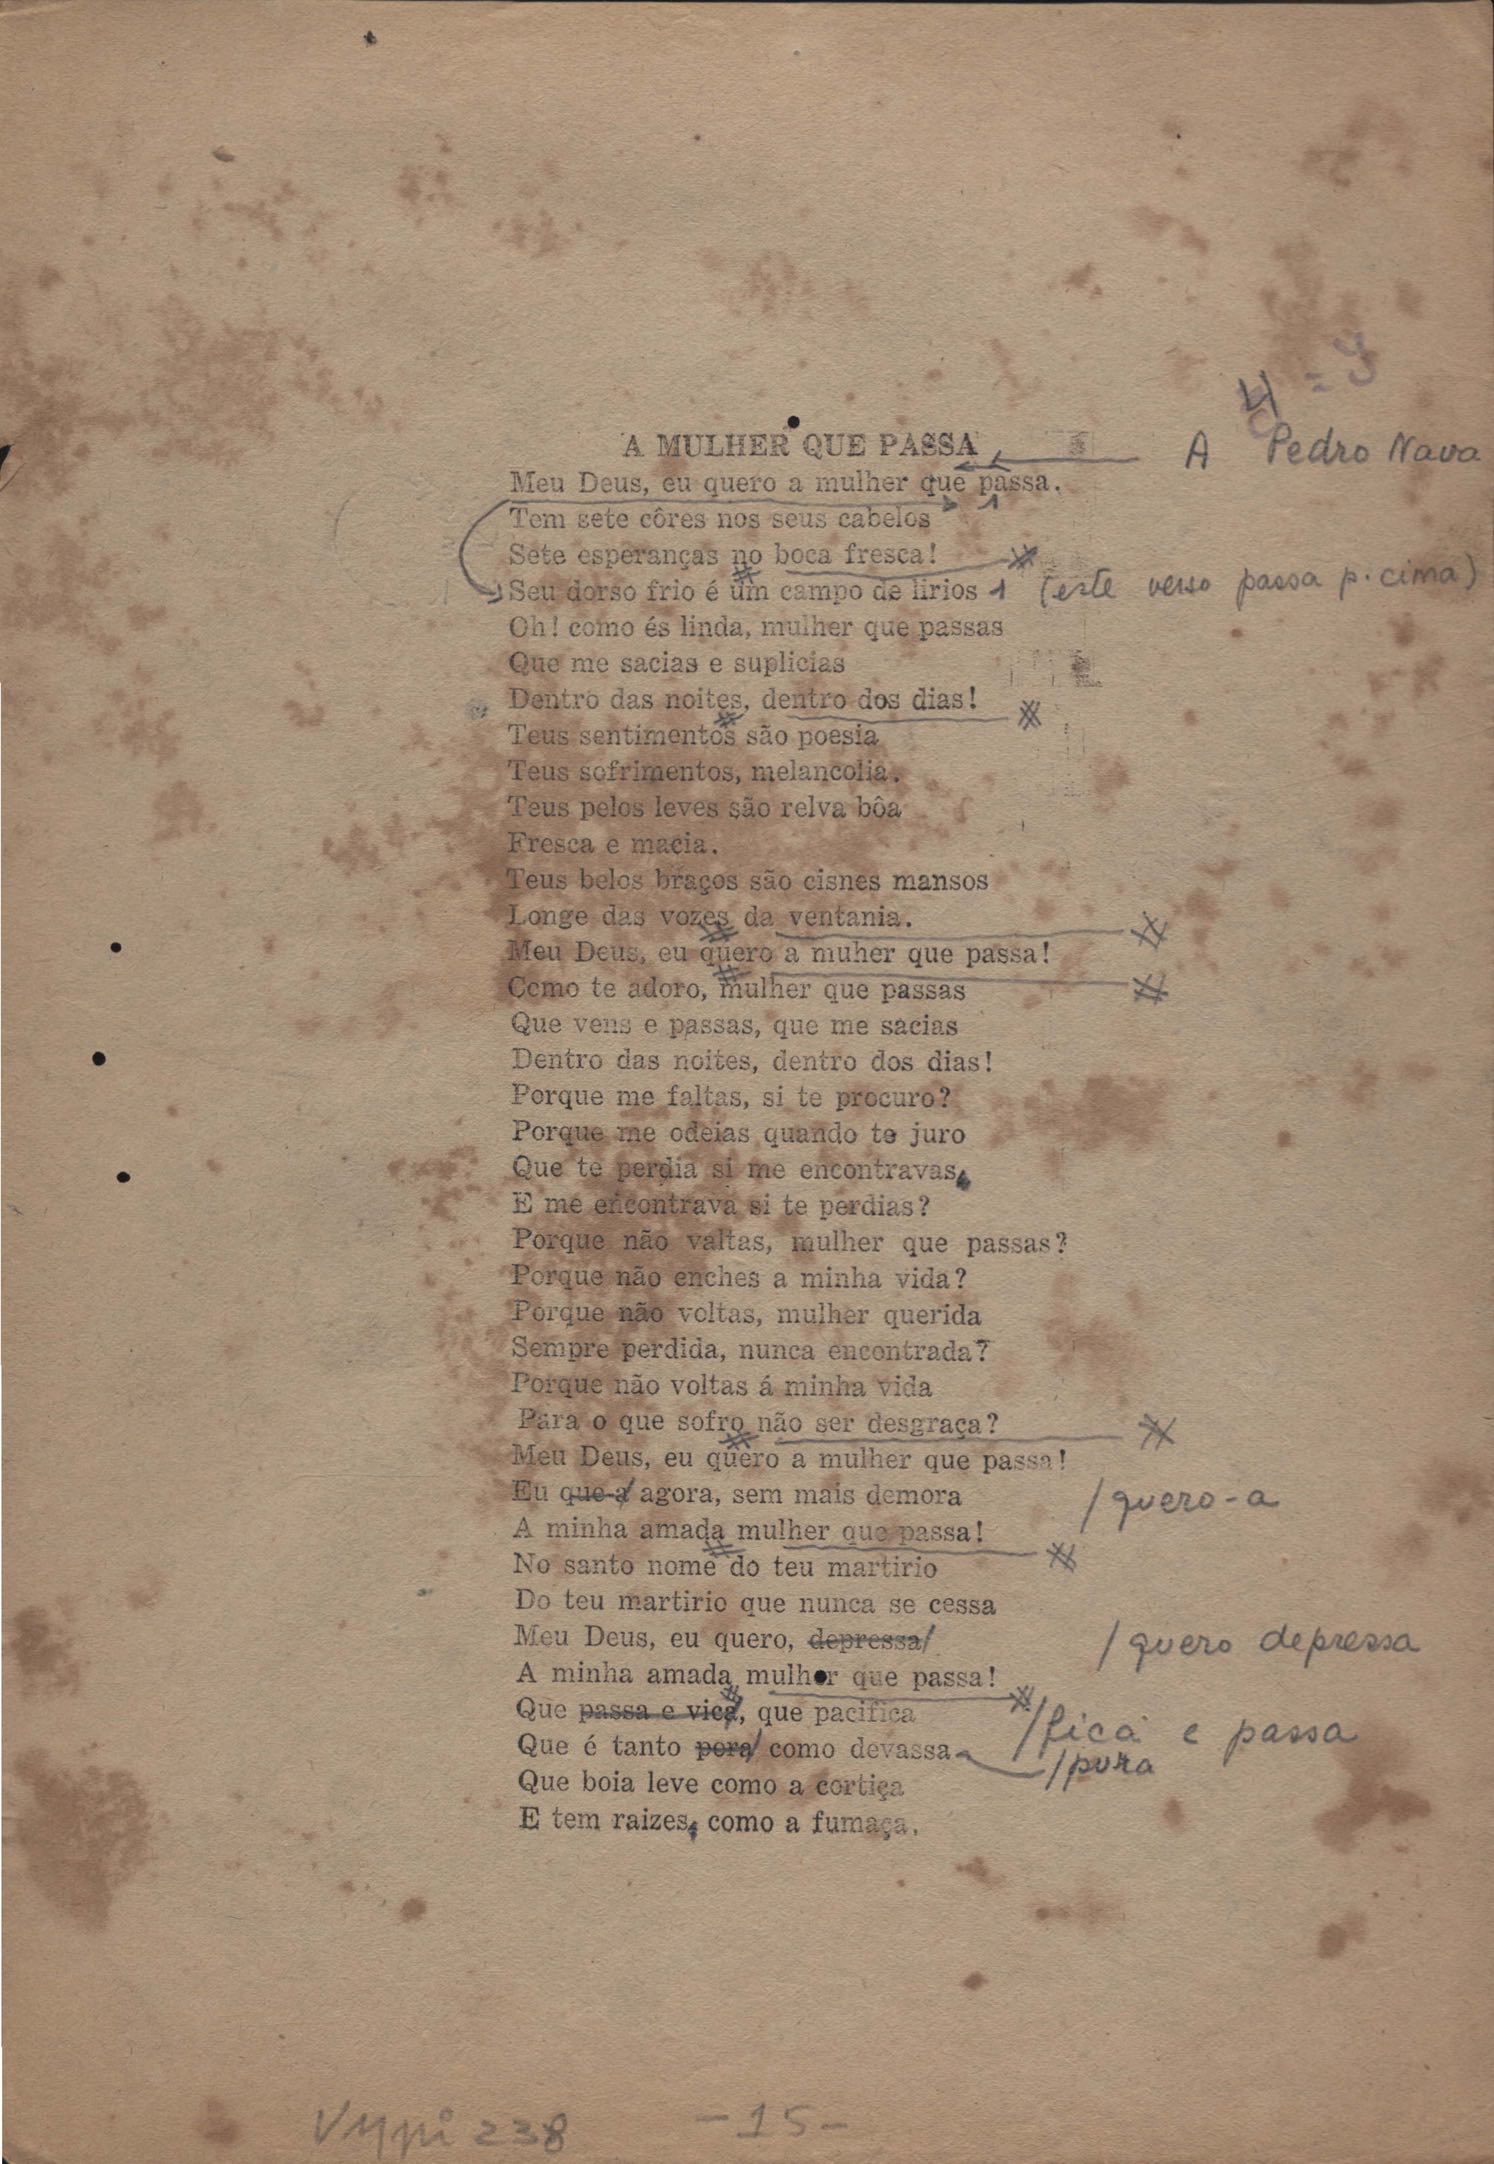 4 = 9
A MULHER QUE PASSA
A Pedro Nava
Meu Deus, eu quero a mulher que passa.
1
Tem sete côres nos seus cabelos
Sete esperanças no boca fresca!
Seu dorso frio é um campo de lirios 1 (este verso passa p. cima)
Oh! como és linda, mulher que passas
Que me sacias e suplicias
Dentro das noites, dentro dos dias!
Teus sentimentos são poesia
Teus sofrimentos, melancolia.
Teus pelos leves são relva bôa
Fresca e macia.
Teus belos braços são cisnes mansos
Longe das vozes da ventania.
Meu Deus, eu quero a muher que passa!
Como te adoro, mulher que passas
Que vens e passas, que me sacias
Dentro das noites, dentro dos dias!
Porque me faltas, si te procuro?
Porque me odeias quando te juro
Que te perdia si me encontravas
E me encontrava si te perdias?
Porque não valtas, mulher que passas?
Porque não enches a minha vida?
Porque não voltas, mulher querida
Sempre perdida, nunca encontrada?
Porque não voltas á minha vida
Para o que sofro não ser desgraça?
Meu Deus, eu quero a mulher que passa!
Eu que a agora, sem mais demora /quero-a
A minha amada mulher que passa!
No santo nome do teu martirio
Do teu martirio que nunca se cessa
Meu Deus, eu quero, depressa /quero depressa
A minha amada mulher que passa!
Que passa e vica, que pacifica /fica e passa
Que é tanto pora como devassa /pura
Que boia leve como a cortiça
E tem raizes, como a fumaça.
238
-15-